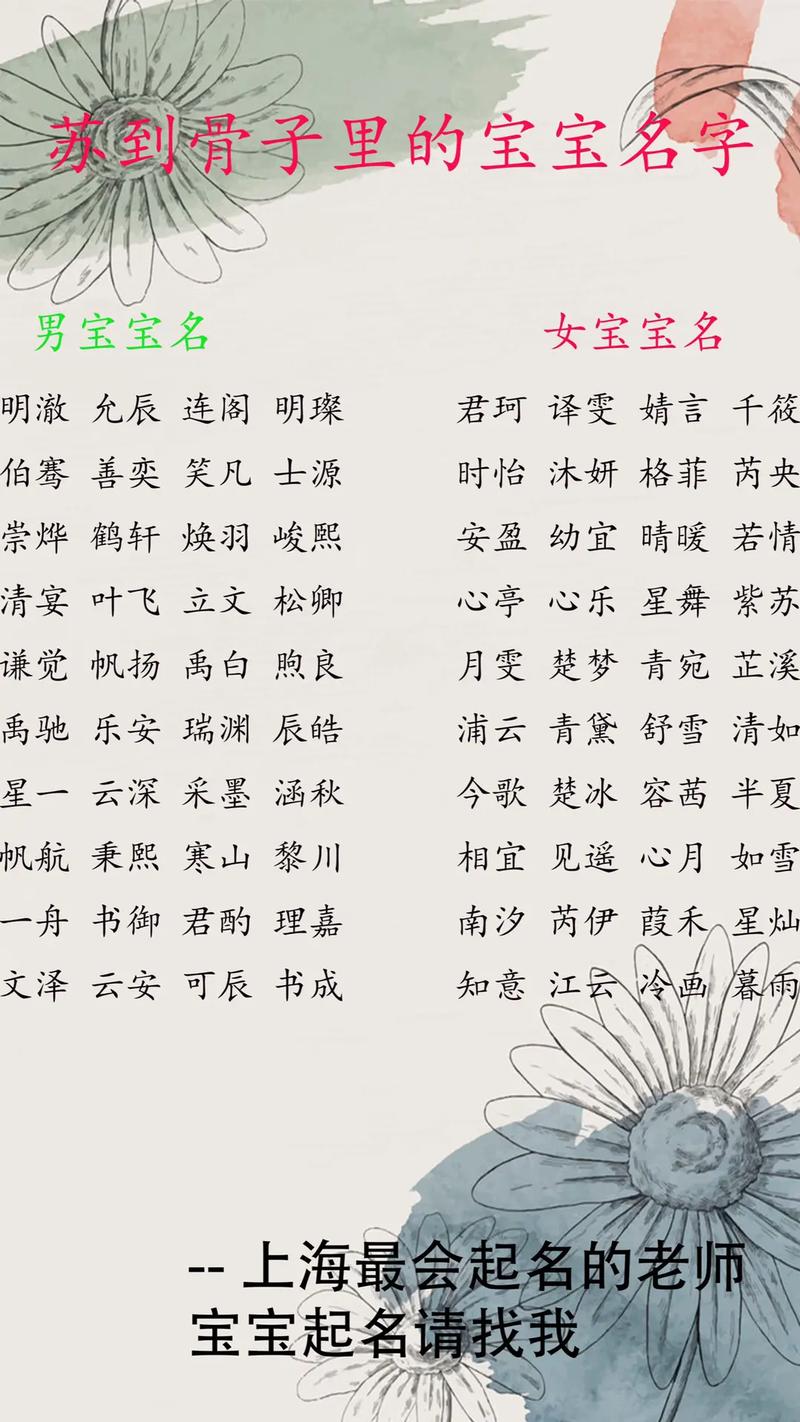 苏到骨子里的宝宝名字
男宝宝名 女宝宝名
明澈 允辰 连阁 明璨 君珂 译雯 婧言 千筱
伯骞 善奕 笑凡 士源 时怡 沐妍 格菲 芮央
崇烨 鹤轩 焕羽 峻熙 安盈 幼宜 晴暖 若情
清宴 叶飞 立文 松卿 心亭 心乐 星舞 紫苏
谦觉 帆扬 禹白 煦良 月雯 楚梦 青宛 芷溪
禹驰 乐安 瑞渊 辰皓 浦云 青黛 舒雪 清如
星一 云深 采墨 涵秋 今歌 楚冰 容茜 半夏
帆航 秉熙 寒山 黎川 相宜 见遥 心月 如雪
一舟 书御 君酌 理嘉 南汐 芮伊 葭禾 星灿
文泽 云安 可辰 书成 知意 江云 冷画 暮雨
-- 上海最会起名的老师
宝宝起名请找我